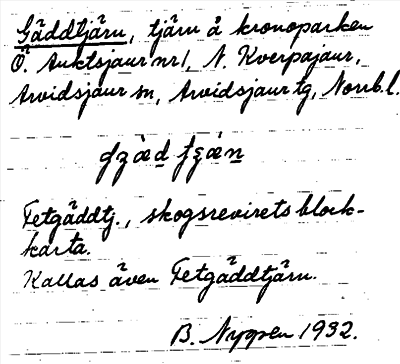 Gäddtjärn, tjärn å kronoparken
Ö. Auktsjaur nr 1, N. Kverpajaur,
Arvidsjaur sn, Arvidsjaur tg, Norrb. l.
Fetgäddtj., skogsrevirets block-
karta.
Kallas även Fetgäddtjärn.
B. Nygren 1932.